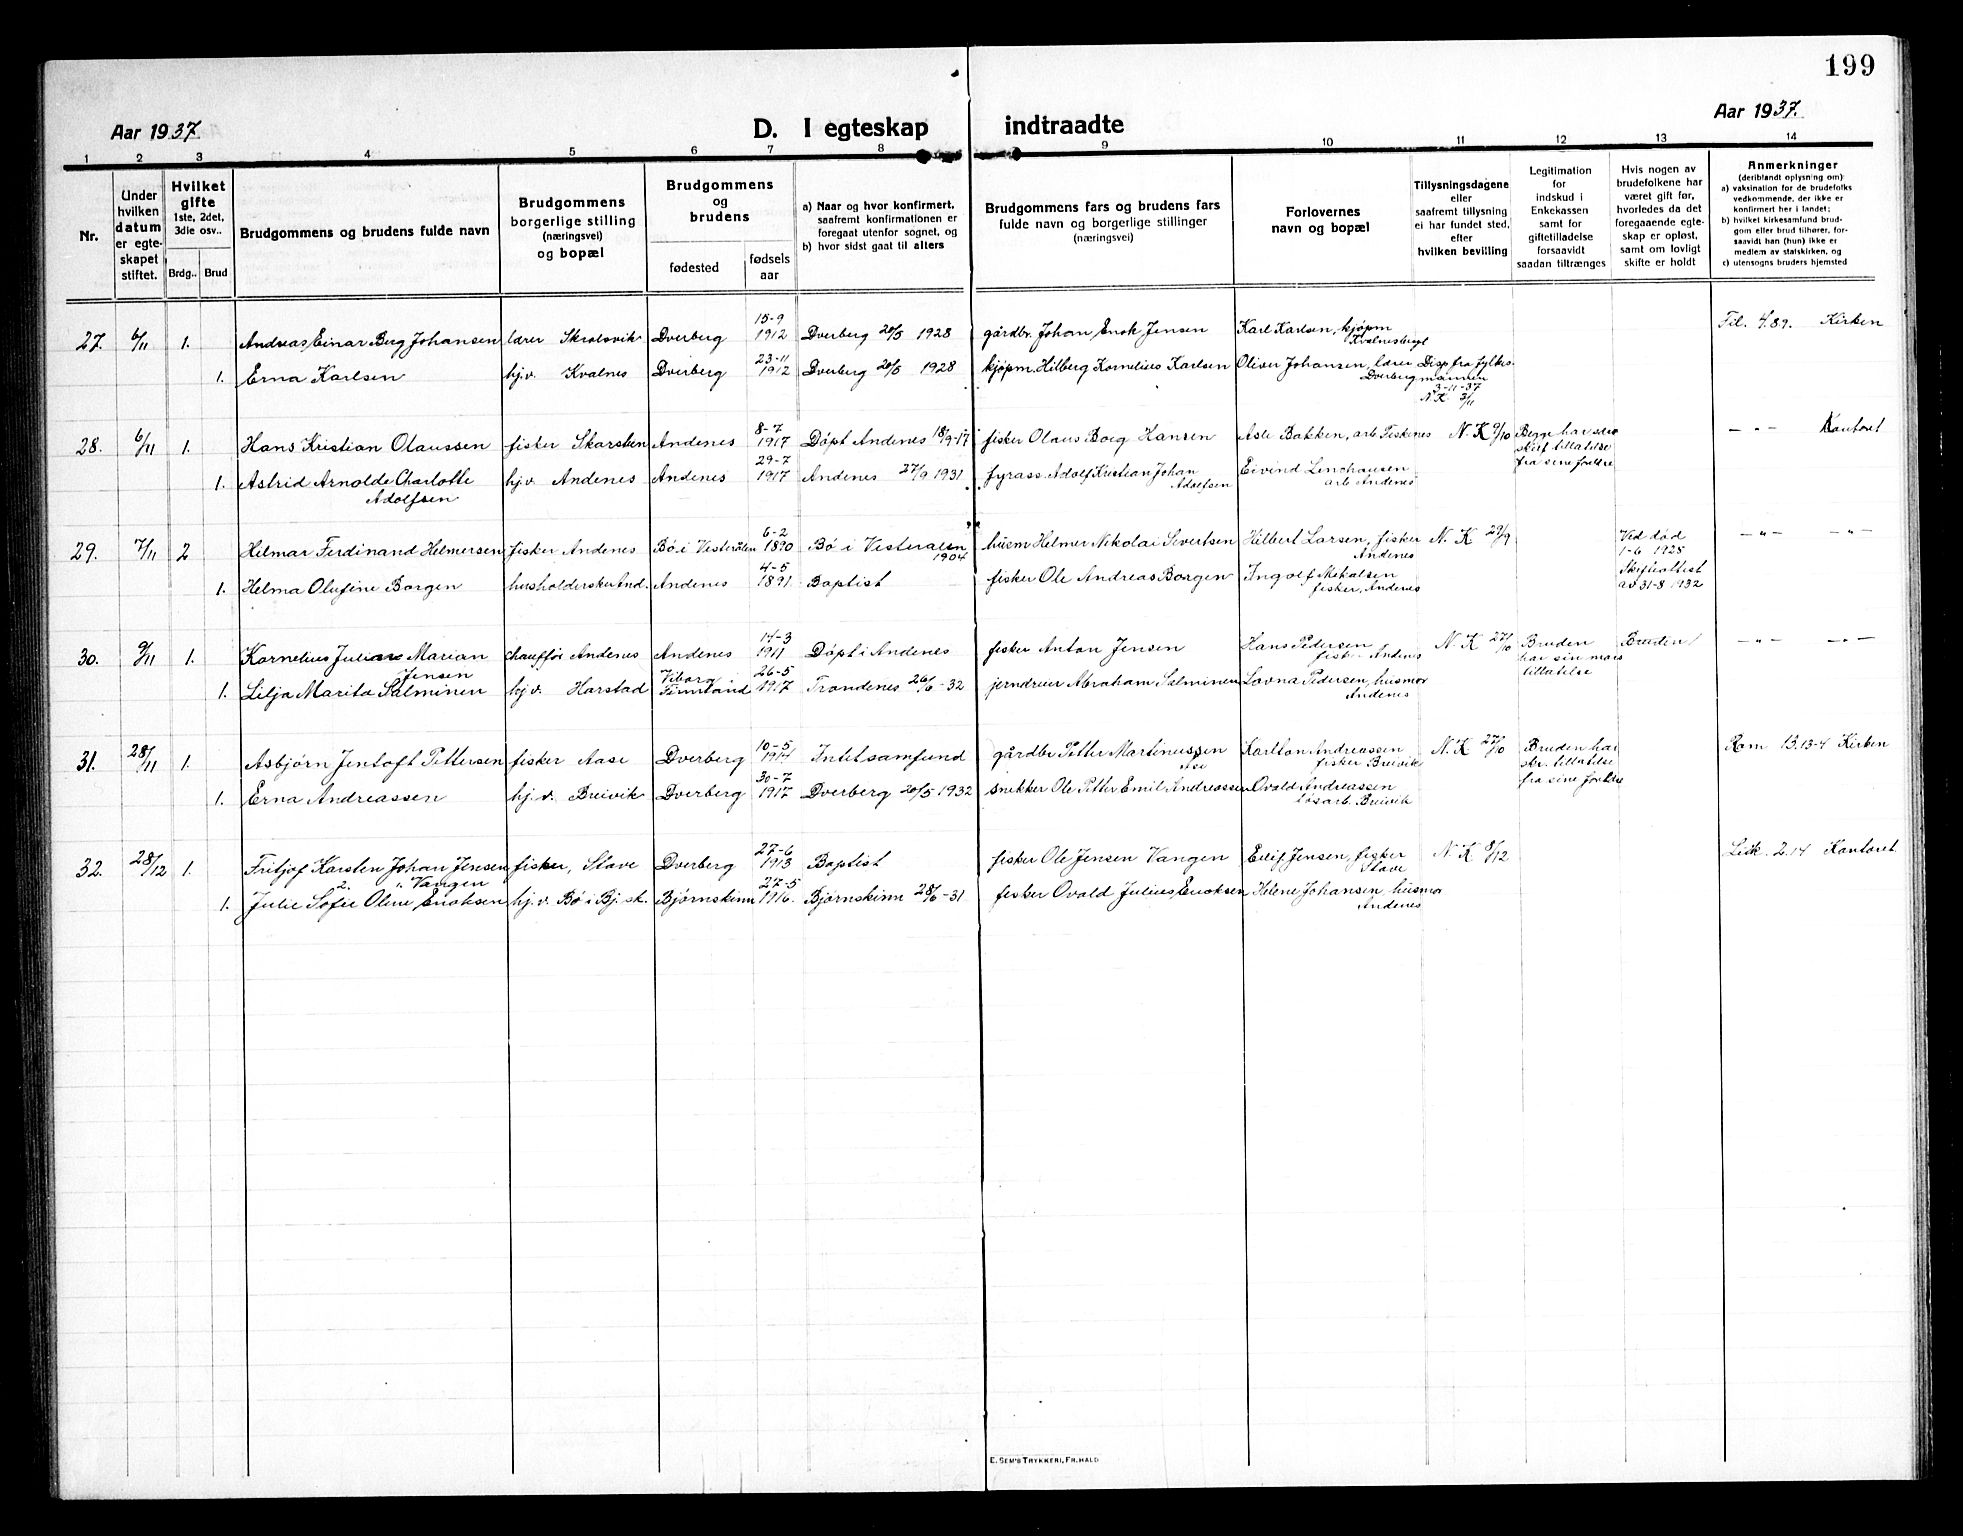 199
Aar 1937. D. I egteskap indtraadte Aar 1937.
1 2 3 4 5 6 7 8 9 10 11 12 13 14
Nr.
Under hvilken datum er egteskapet stiftet.
Hvilket gifte
1ste, 2det, 3die osv..
Brdg.. Brud
Brudgommens og brudens fulde navn
Brudgommens borgerlige stilling (næringsvei) og bopæl
Brudgommens og brudens
fødested
fødselsaar
a) Naar og hvor konfirmert, saafremt konfirmationen er foregaat utenfor sognet, og
b) hvor sidst gaat til alters
Brudgommens fars og brudens fars fulde navn og borgerlige stillinger (næringsvei)
Forlovernes navn og bopæl
Tillysningsdagene eller saafremt tillysning ei har fundet sted, efter hvilken bevilling
Legitimation for indskud i Enkekassen samt for giftetilladelse forsaavidt saadan tiltrænges
Hvis nogen av brudefolkene har været gift før, hvorledes da det foregaaende egteskap er opløst, samt om lovligt skifte er holdt
Anmerkninger
(deriblandt oplysning om):
a) vaksination for de brudefolks vedkommende, der ikke er konfirmert her i landet;
b) hvilket kirkesamfund brudgom eller brud tilhører, forsaavidt han (hun) ikke er medlem av statskirken, og
c) utensogns bruders hjemsted
27. 6/11 1. Andreas Einar Berg Johansen lærer Skrolsvik Dverberg 15-9 1912 Dverberg 20/5 1928 gårdbr. Johan Enok Jensen Karl Karlsen, kjøpm Kvalnesbergt Fil. 4.8.9. Kirken
1. Erna Karlsen hj.v. Kvalnes Dverberg 23-11 1912 Dverberg 20/5 1928 kjøpm. Hilberg Kornelius Karlsen Oliver Johansen, lærer Dverberg Disp fra fylkesmannen 3-11-37 N.K. 3/11
28. 6/11 1. Hans Kristian Olaussen fisker Skarsten Andenes 8-7 1917 Døpt Andenes 18/9-17 fisker Olaus Borg Hansen Asle Bakken, arb Fiskenes N.K 9/10 Begge har skrif tillatilse fra sine foreldre - " - Kontoret
1. Astrid Arnolde Charlotte Adolfsen hj.v. Andenes Andenes 29-7 1917 Andenes 27/9 1931 fyrass. Adolf Kristian Johan Adolfsen Eivind Lenchausen arb Andenes
29. 7/11 2 Hilmar Ferdinand Helmersen fisker Andenes Bø i Vesterålen 6-2 1890 Bø i Vesteralen 1904 husm Helmer Nikolai Sivertsen Hilbert Larsen, fisker Andenes N.K 29/9 Ved død 1-6 1928 Skifteattest av 31-8 1932 - " - - " -
1. Helma Olufine Borgen husholderske And. Andenes 4-5 1891 Baptist fisker Ole Andreas Borgen Ingolf Mikalsen fisker, Andenes
30. 9/11 1. Kornelius Julian Marian Jensen chauffør Andenes Andenes 14-3 1911 Døpt i Andenes fisker Anton Jensen Hans Pedersen fisker Andenes N.K 27/10 Bruden har sin mors tillatilse Bruden - " - - " -
1. Lilja Marita Salminen hj.v. Harstad Viborg i Finnland 26-5 1917 Trondenes 26/6 - 32 jerndreier Abraham Salminen Lovna Pedersen, husmor Andenes
31. 28/11 1. Asbjørn Jentoft Pettersen fisker Aase Dverberg 10-5 1914 Intet samfund gårdbr Petter Martinussen Åse Karlton Andreassen fisker Breivik N.K 27/10 Bruden har skr. tillatilse fra sine foreldre Ram 13.13-4 Kirken
1. Erna Andreassen hj.v. Breivik Dverberg 30-7 1917 Dverberg 20/5 1932 snekker Ole Petter Emil Andreassen Ovald Andreassen løsarb. Breivik
32. 28/12 1. Fritjof Karsten Johan Jensen Vangen fisker, Stave Dverberg 27-6 1913 Baptist fisker Ole Jensen Vangen Eilif Jensen, fisker Stave N.K 8/12 Lidk. 2.14 Kontoret
1. Julie Sofie Oline Enoksen hj.v. Bø i Bj.sk. Bjørnskinn 27-5 1916. Bjørnskinn 28/6 - 31 fisker Ovald Julius Enoksen Helene Johansen husmor Andenes
E. SEM'S TRYKKERI, FR.HALD